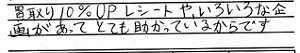 買取り10%UPレシートや、いろいろな企
画があってとても助かっているからです